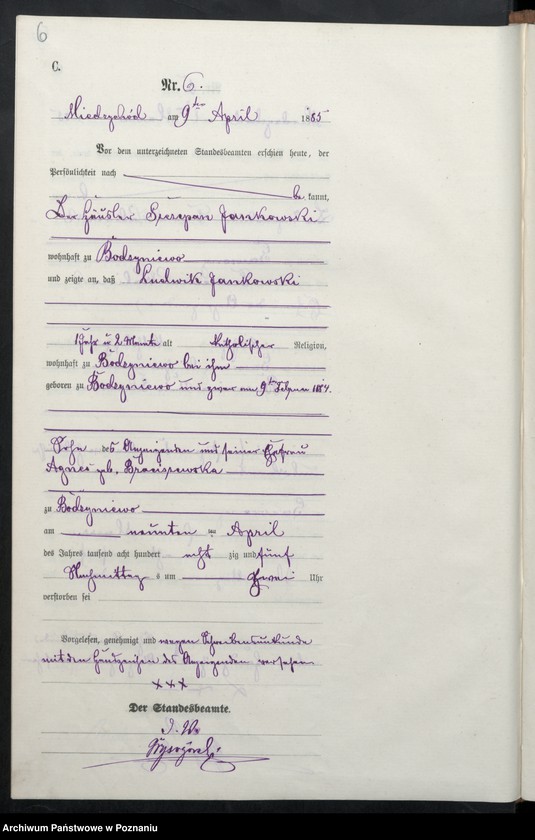 6
C.
Nr. 6.
Miedzychód am 9ten April 1885
Vor dem unterzeichneten Standesbeamten erschien heute, der
Persönlichkeit nach
be kannt,
Der Häusler Szczepan Jankowski
wohnhaft zu Bodzyniewo
und zeigte an, daß Ludwik Jankowski
1 Jahr u 2 Monate alt katholischer Religion,
wohnhaft zu Bodzyniewo bei ihm
geboren zu Bodzyniewo und zwar am 9ten Februar 1884.
Sohn des Anzeigenden und seiner Ehefrau
Agnes geb.
zu Bodzyniewo
am neunten April
des Jahres tausend acht hundert acht zig und fünf
Nachmittag s um zwei Uhr
verstorben sei
Vorgelesen, genehmigt und wegen Schreibensunkunde
mit den Handzeichen des Anzeigenden versehen
+++
Der Standesbeamte.
J. V.
Archiwum Państwowe w Poznaniu